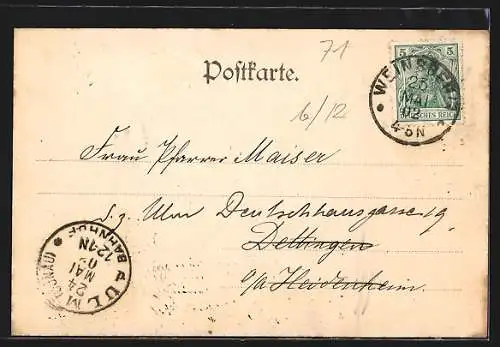 71
5 5
DEUTSCHES REICH
WEINSBERG
23
MAI
02
4-5N
Postkarte.
6/12
Frau Pfarrer Maiser
s. z. Ulm Deutschhausgasse 19
Dettingen
o/a Heidenheim
ULM (DONAU)
24
MAI
02
12-1N
BAHNHOF